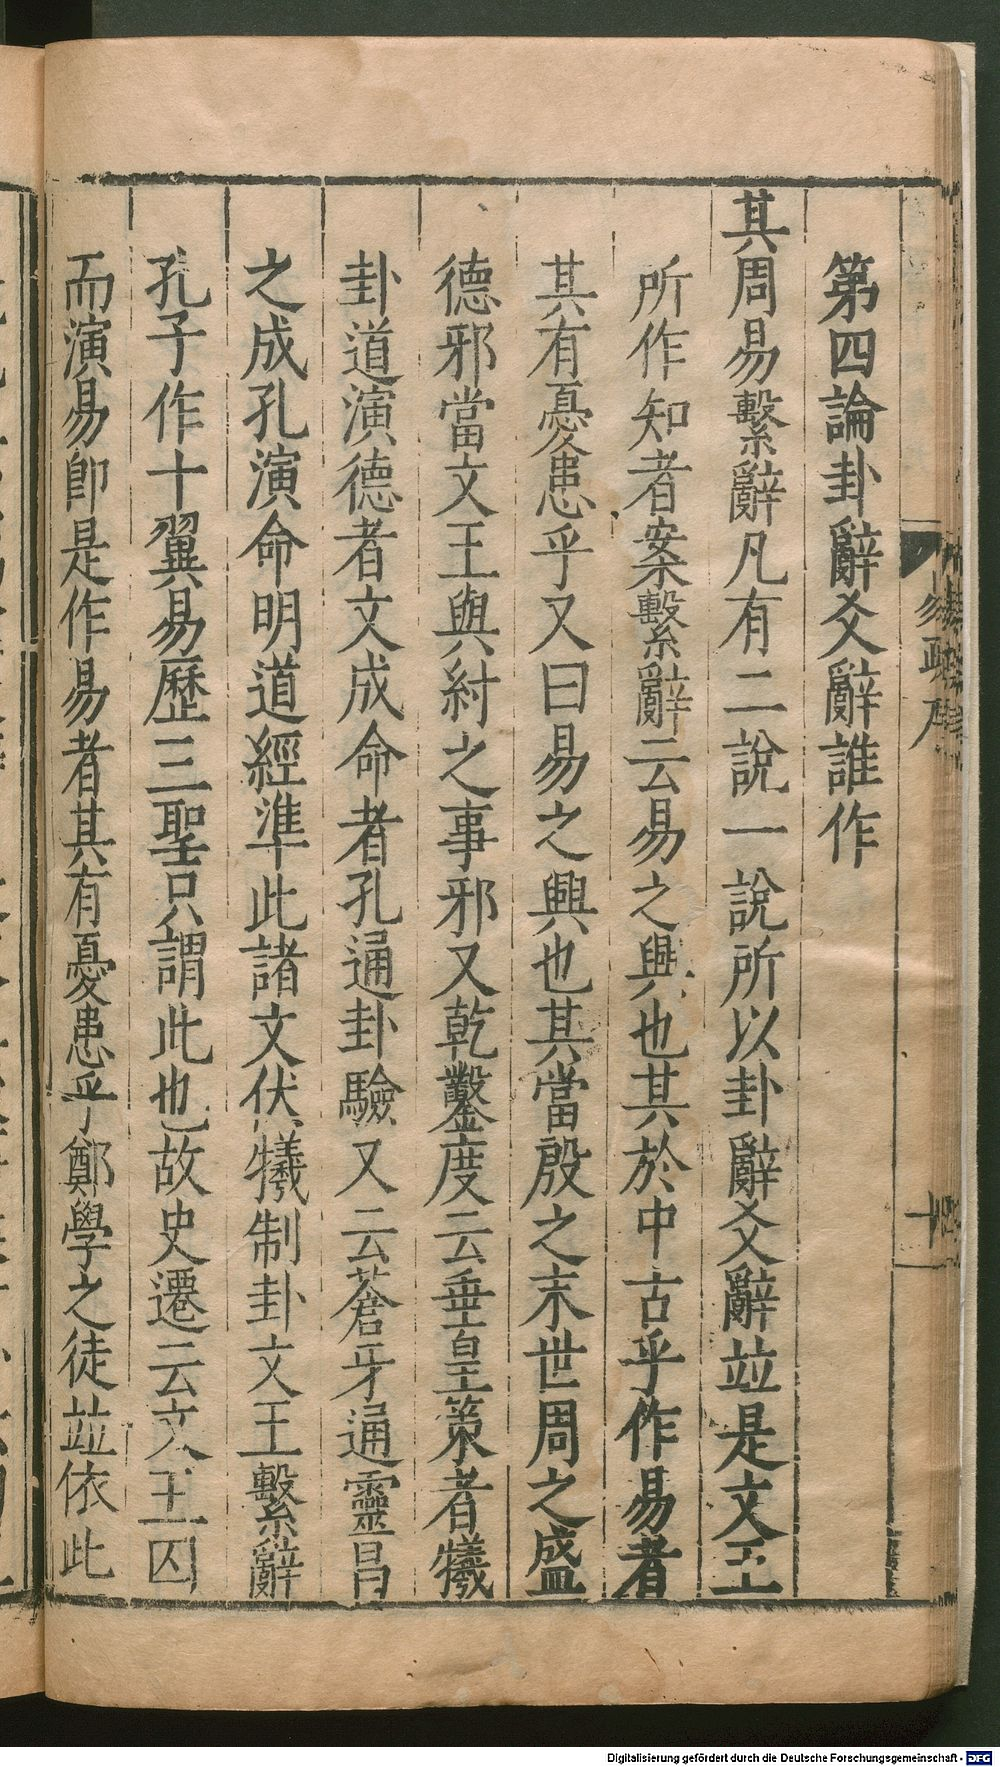 第四論卦辭爻辭誰作
其周易繫辭凡有二說一說所以卦辭爻辭竝是文王
所作知者案繫辭云易之興也其於中古乎作易者
其有憂患乎又曰易之興也其當殷之末世周之盛
德邪當文王與紂之事邪又乾鑿度云垂皇策者犧
卦道演德者文成命者孔通卦驗又云蒼牙通靈昌
之成孔演命明道經準此諸文伏犧制卦文王繫辭
孔子作十翼易歷三聖只謂此也故史遷云文王囚
而演易卽是作易者其有憂患乎鄭學之徒竝依此
Digitalisierung gefördert durch die Deutsche Forschungsgemeinschaft - DFG